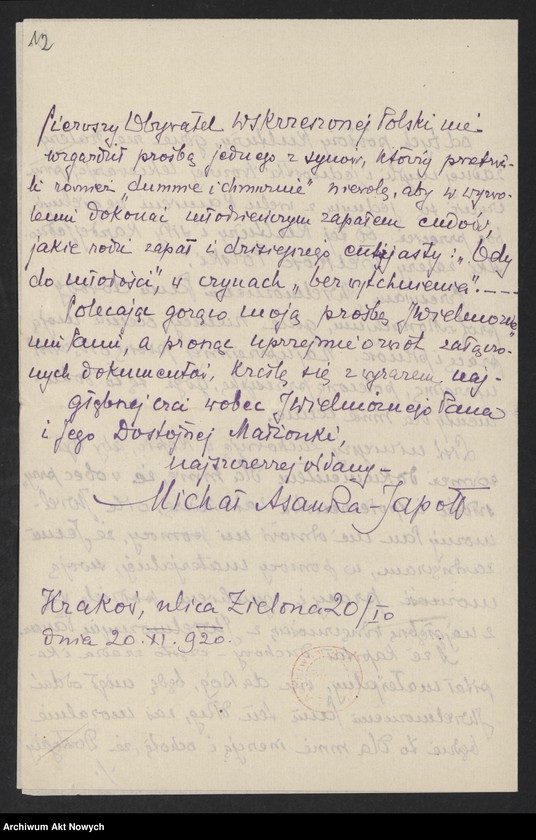 12
Pierwszy Obywatel Wskrzeszonej Polski nie
wzgardził prośbą jednego z synów, którzy przetrwa-
li również „dumnie i chmurnie” niewolę, aby w wyzwo-
leniu dokonać młodzieńczym zapałem cudów,
jakie rodzi zapał i dzisiejszego entuzjasty: „Ody
do młodości”, w czynach „bez wytchnienia”. —
Polecając gorąco moją prośbę JWielmożne-
mu Panu, a prosząc uprzejmie o zwrot załączo-
nych dokumentów, kreślę się z wyrazem naj-
głębszej czci wobec JWielmożnego Pana
i Jego Dostojnej Małżonki,
najszczerzej oddany —
Michał Asanka-Japołł
Kraków, ulica Zielona 20/I p
dnia 20. XI. 920.
Archiwum Akt Nowych